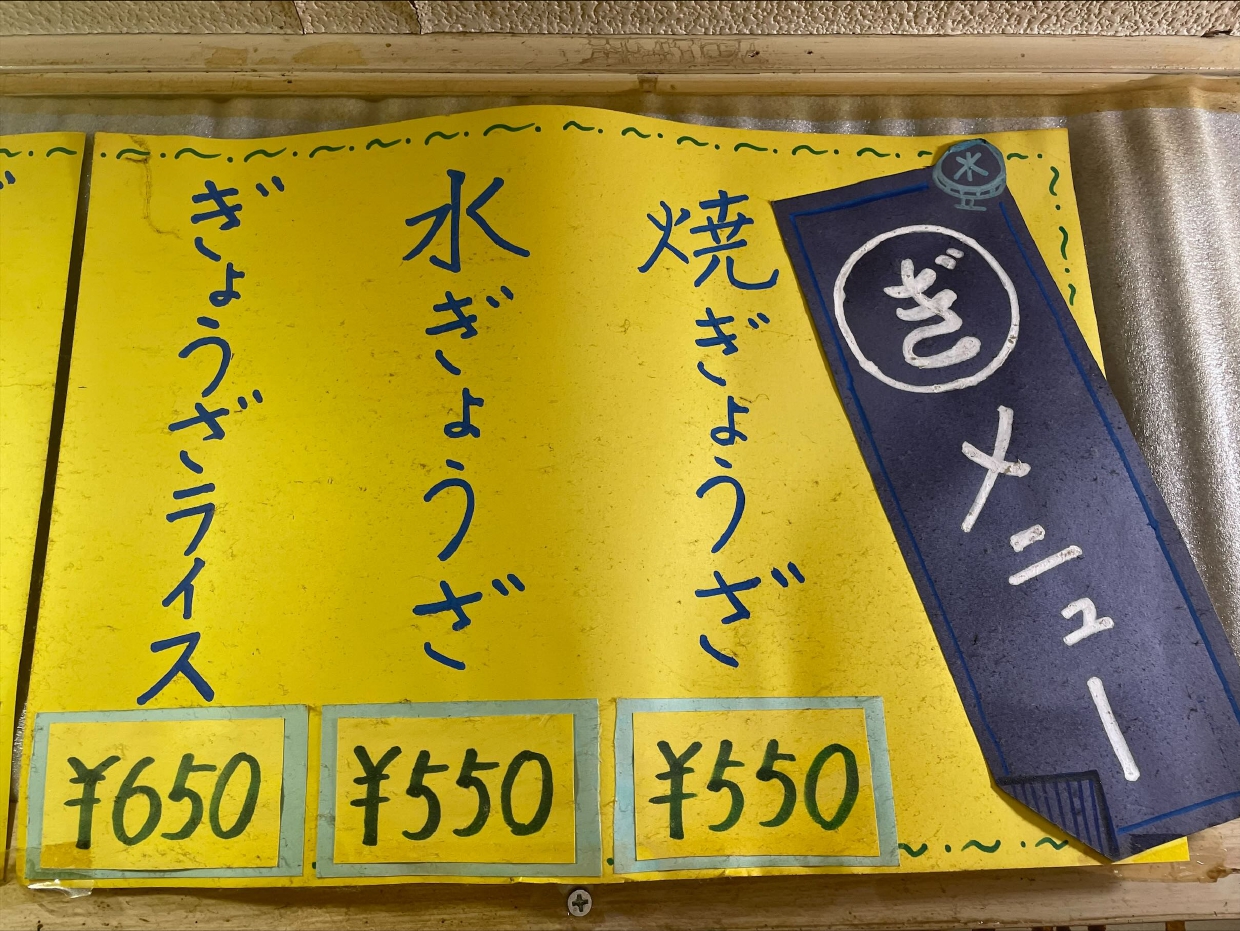 水
ぎ
メニュー
焼ぎょうざ
¥550
水ぎょうざ
¥550
ぎょうざライス
¥650